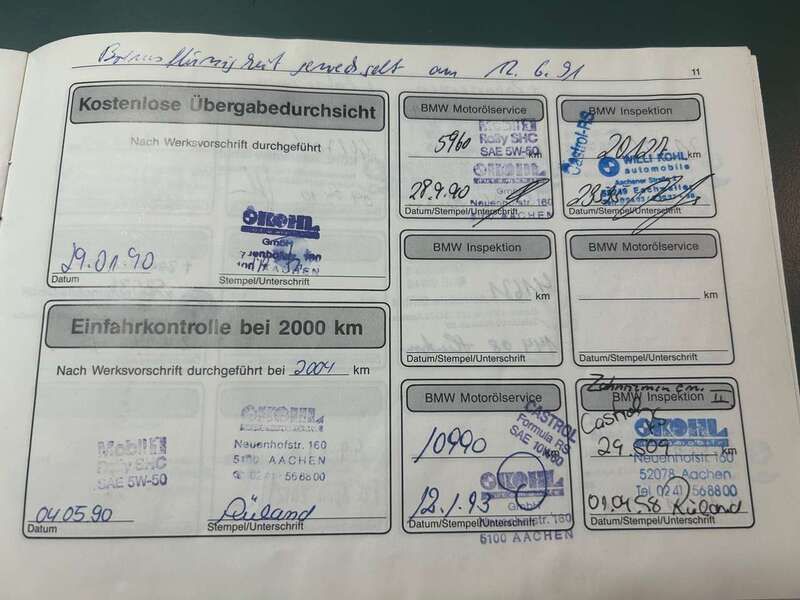 Bremsflüssigkeit gewechselt am 12.6.91
11
Kostenlose Übergabedurchsicht
Nach Werksvorschrift durchgeführt
KOHL
GmbH
AACHEN
29.01.90
Datum
Stempel/Unterschrift
Einfahrkontrolle bei 2000 km
Nach Werksvorschrift durchgeführt bei 2004 km
Mobil 1
Rally SHC
SAE 5W-50
KOHL
Neuenhofstr. 160
5100 AACHEN
0241 568800
04.05.90
Rüland
Datum
Stempel/Unterschrift
BMW Motorölservice
5960 km
Mobil 1
Rally SHC
SAE 5W-50
KOHL
GmbH
Neuenhofstr. 160
AACHEN
28.9.90
Datum/Stempel/Unterschrift
BMW Inspektion
Castrol-RS
km
WILLI KOHL
automobile
Aachener Straße
Eschweiler
Datum/Stempel/Unterschrift
BMW Inspektion
km
Datum/Stempel/Unterschrift
BMW Motorölservice
km
Datum/Stempel/Unterschrift
BMW Motorölservice
CASTROL
Formula RS
SAE 10W60
10990 km
KOHL
GmbH
12.1.93
Neuenhofstr. 160
5100 AACHEN
Datum/Stempel/Unterschrift
BMW Inspektion II
Castrol
KOHL
29.509 km
Neuenhofstr. 160
52078 Aachen
Tel. 0241 568800
Rüland
Datum/Stempel/Unterschrift